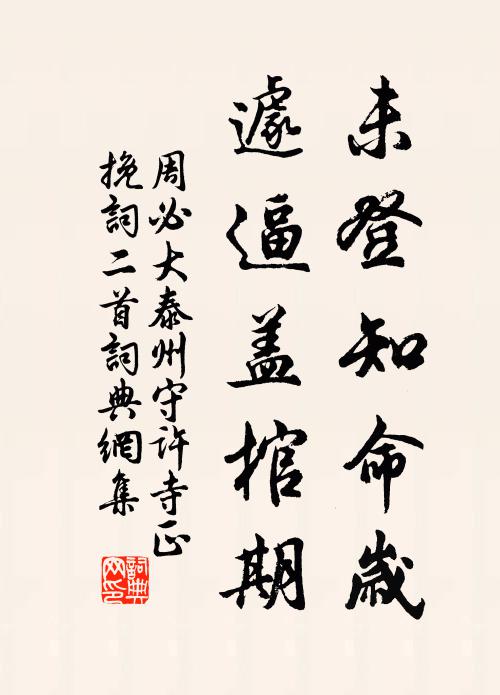 未登知命歲
遽逼盖棺期
周必大泰州守許寺正
挽詞二首詞典網集
詞典网印